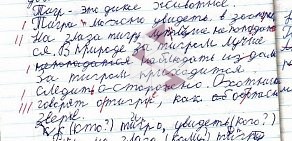 Тигр - это дикое животное.
Тигра можно увидеть в зоопарке
На глаза тигру лучше не попадать
ся. В природе за тигром лучше
наблюдать издали
За тигром приходится
следить осторожно. Охотники
говорят о тигре, как об опасном
звере.
(кто?) тигр, увидеть (кого?)
на глаза (кому?) тигру